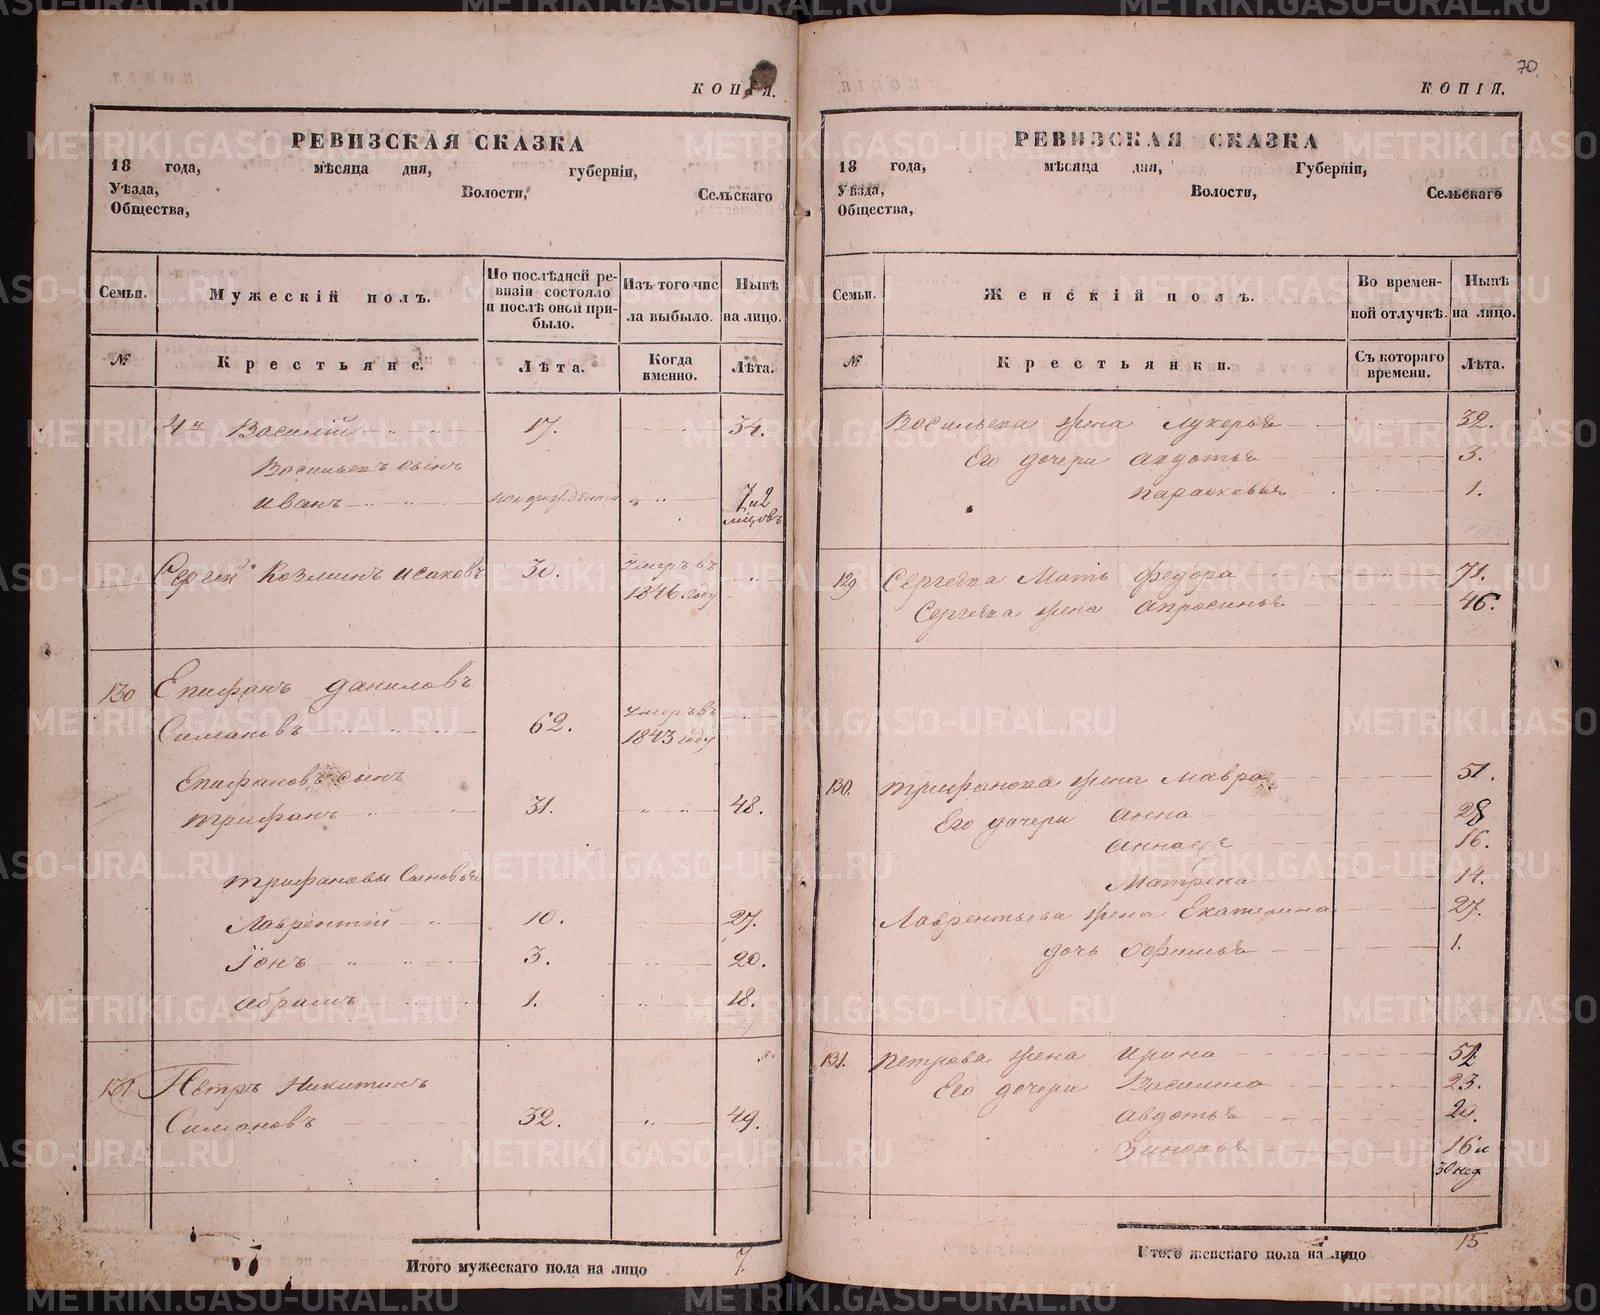 КОПІЯ.
РЕВИЗСКАЯ СКАЗКА
18 года, мѣсяца дня, губерніи,
Уѣзда, Волости, Сельскаго
Общества,
Семьи. Мужескій полъ. По послѣдней ре-визіи состояло и послѣ оной при-было. Изъ того чис ла выбыло. Нынѣ на лицо.
№ Крестьяне. Лѣта. Когда именно. Лѣта.
4й Василій 17. 34.
Васильевъ сынъ
Иванъ 7 и 2
мцовъ
Сергей Козминъ Исаковъ 30. умеръ въ
1846. году
130 Епифанъ Даниловъ
Симановъ 62. умеръ въ
1843 году
Епифановъ сынъ
Трифанъ 31. 48.
Трифановы Сыновья
Лаврентій 10. 27.
Іонъ 3. 20.
Абрамъ 1. 18.
131 Петръ Никитинъ
Симоновъ 32. 49.
Итого мужескаго пола на лицо 7.
70
КОПІЯ.
РЕВИЗСКАЯ СКАЗКА
18 года, мѣсяца дня, Губерніи,
Уѣзда, Волости, Сельскаго
Общества,
Семьи. Женскій полъ. Во времен-ной отлучкѣ. Нынѣ на лицо.
№ Крестьянки. Съ котораго времени. Лѣта.
Васильева жена Лукерья 32.
Его дочери Авдотья 3.
Парасковья 1.
129 Сергѣева Мать Федора 71.
Сергѣева жена Апросинья 46.
130. Трифанова жена Мавра 51.
Его дочери Анна 28
16.
Матрена 14.
Лаврентьева жена Екатерина 27.
дочь Офимья 1.
131. Петрова жена Ирина 52.
Его дочери Василиса 23.
Авдотья
Зиновья 16 и
30 нед
Итого женскаго пола на лицо 15
METRIKI.GASO-URAL.RU